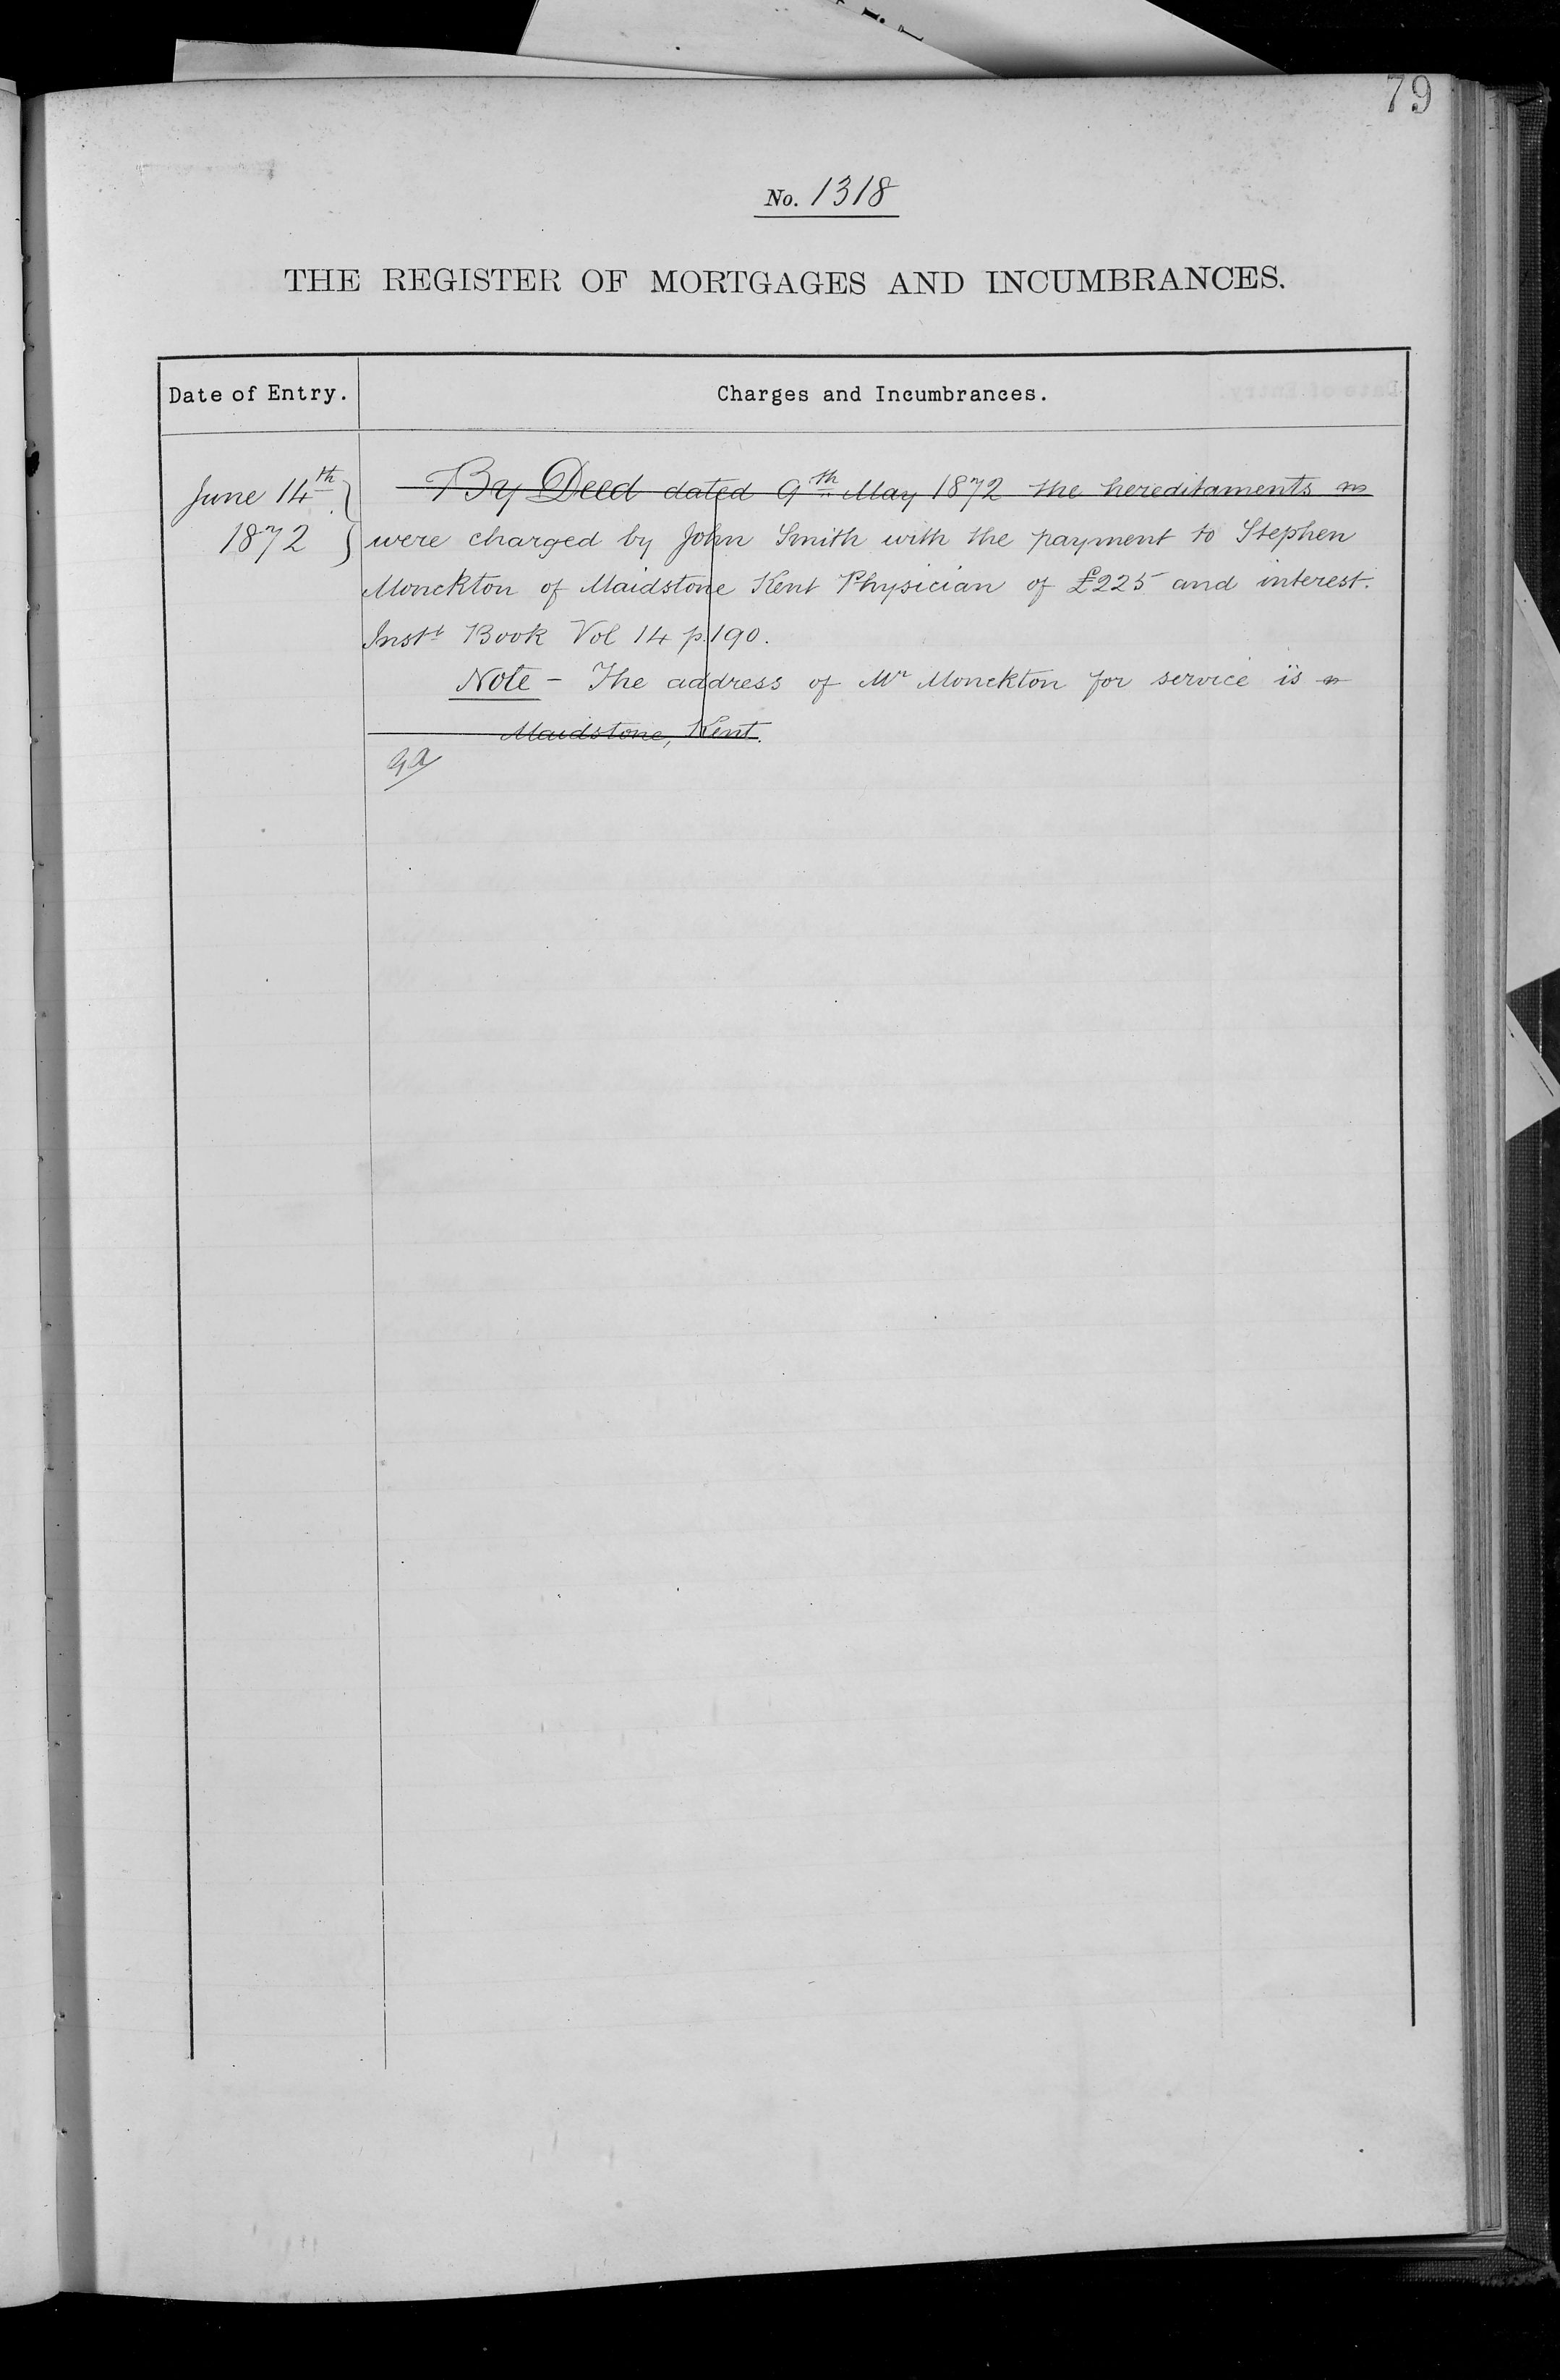 79
No. 1318
THE REGISTER OF MORTGAGES AND INCUMBRANCES.
Date of Entry. Charges and Incumbrances.
June 14th 1872
By Deed dated 9th May 1872 the hereditaments
were charged by John Smith with the payment to Stephen
Monckton of Maidstone Kent Physician of £225 and interest.
Instt Book Vol 14 p.190.
Note - The address of Mr Monckton for service is
Maidstone, Kent.